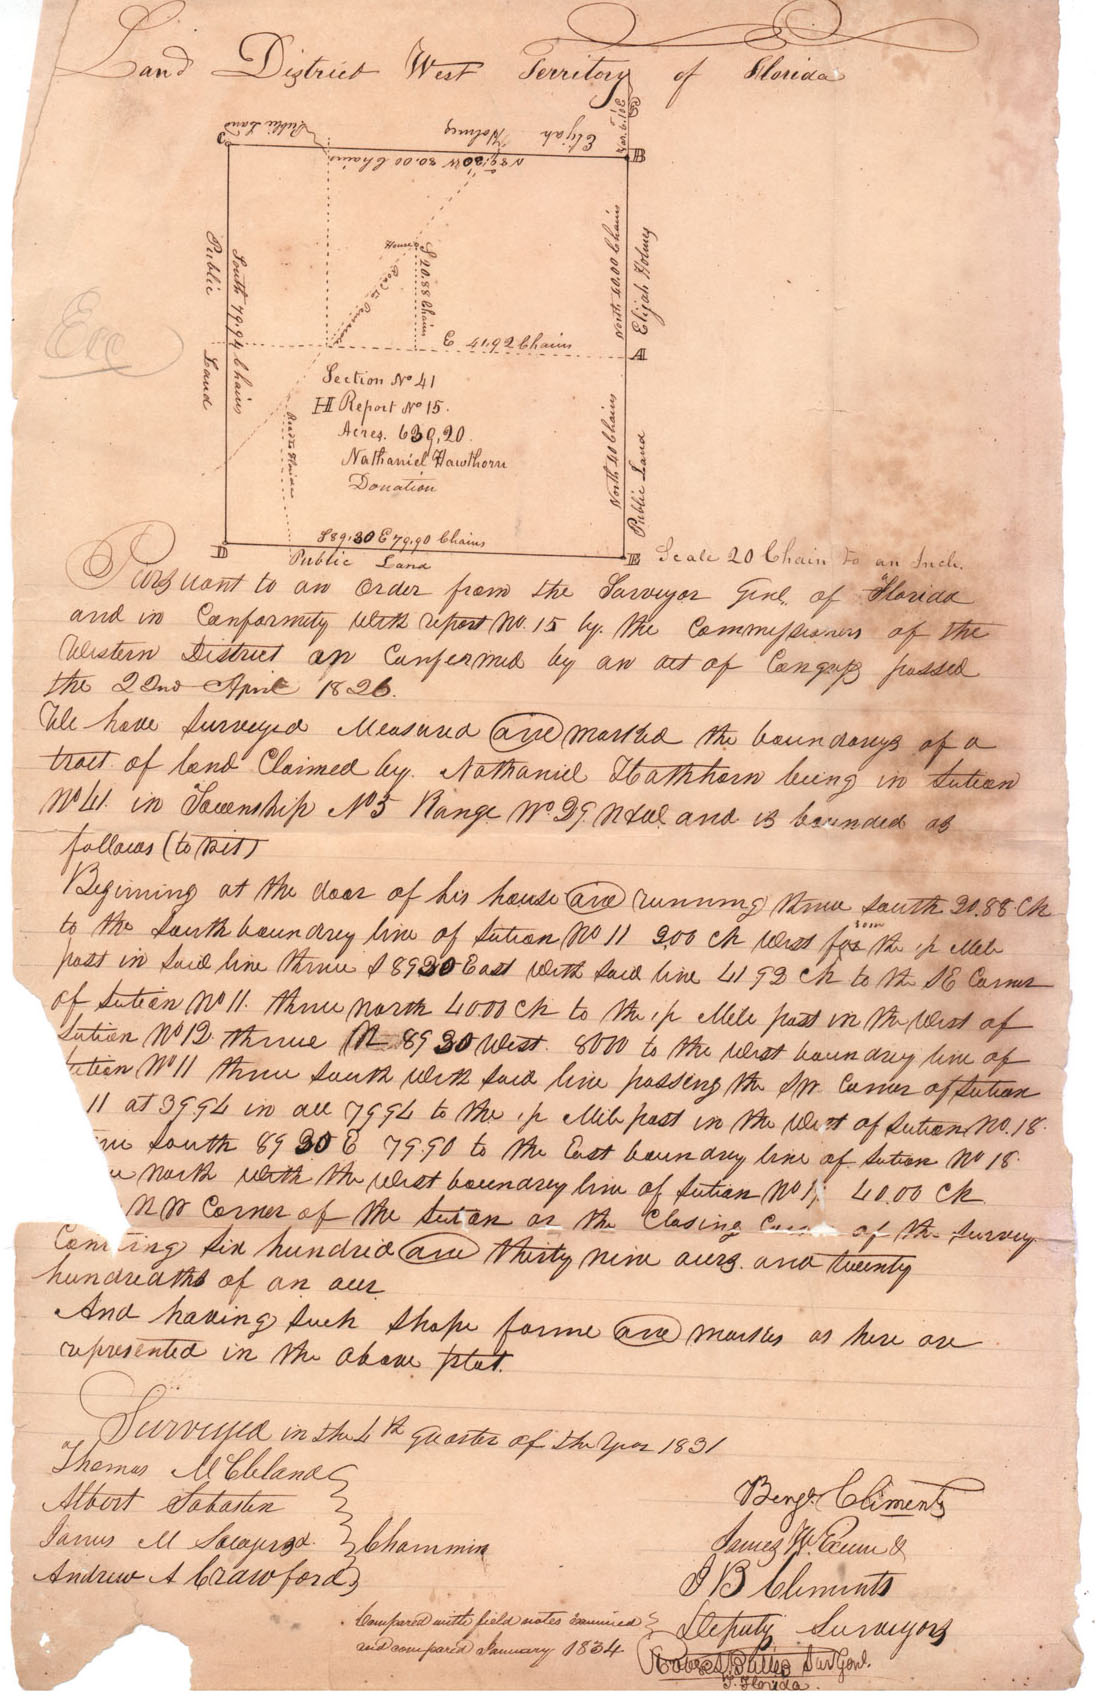 Land District West Territory of Florida
Public Land
Elijah Holmes
N 89.30 W 80.00 Chains
B
House
S 20.88 Chain
Public Land
South 79.94 Chains
North 40.00 Chains
Elijah Holmes
E 41.92 Chains
A
Section No 41
H Report No 15.
Acres. 639,20.
Nathaniel Hawthorn
Donation
North 40 Chains
Public Land
S 89.30 E 79.90 Chains
D
E
Public Land
Scale 20 Chain to an Inch.
Pursuant to an order from the Surveyor Genl. of Florida
and in Conformity with report No. 15 by. the Commissioners of the
Western District as Confirmed by an act of Congress passed
the 22nd April 1826.
We have Surveyed Measured and marked the boundarys of a
tract of land Claimed by. Nathaniel Hathhorn being in Section
No 41. in Township No 5 Range No 29 N & W and is bounded as
follows (to wit)
Beginning at the door of his house and running thence South 20.88 Ch
to the South boundrey line of Section No 11 2.00 Ch West from the ½ Mile
post in said line thence S 89 30 East with said line 41 92 Ch to the SE Corner
of Section No 11. thence North 40.00 Ch to the ½ Mile post in the West of
Section No 12 thence N 89 30 West. 80 00 to the West boundrey line of
No 11 thence South with said line passing the SW. Corner of Section
11 at 39 94 in all 79 94 to the ½ Mile post in the West of Section No. 18.
South 89 30 E 79.90 to the East boundrey line of Section No 18
North with the West boundrey line of Section No 40.00 Ch
NW Corner of the Section or the Closing of the Survey
six hundred and thirty nine acers. and twenty
hundredths of an acer
And having such shape forme and markes as here are
represented in the above plat.
Surveyed in the 4th quarter of the Year 1831
Thomas McCleland
Albert Sabasten
James M
Andrew A Crawford
Chammin
Benj. Clements
James
J B Clements
Deputy Surveyors
Compared with field notes examined
and compared January 1834
Robert Butler Sur Genl.
T. Florida.